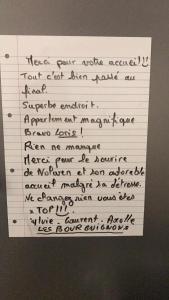 Merci pour votre accueil!!
Tout c'est bien passé au
final.
Superbe endroit.
Appartement magnifique
Bravo Loris!
Rien ne manque
Merci pour le sourire
de Nolwen et son adorable
accueil malgré sa détresse.
Ne changez rien vous êtes
x TOP!!!
Sylvie - Laurent - Axelle
LES BOURGUIGNONS